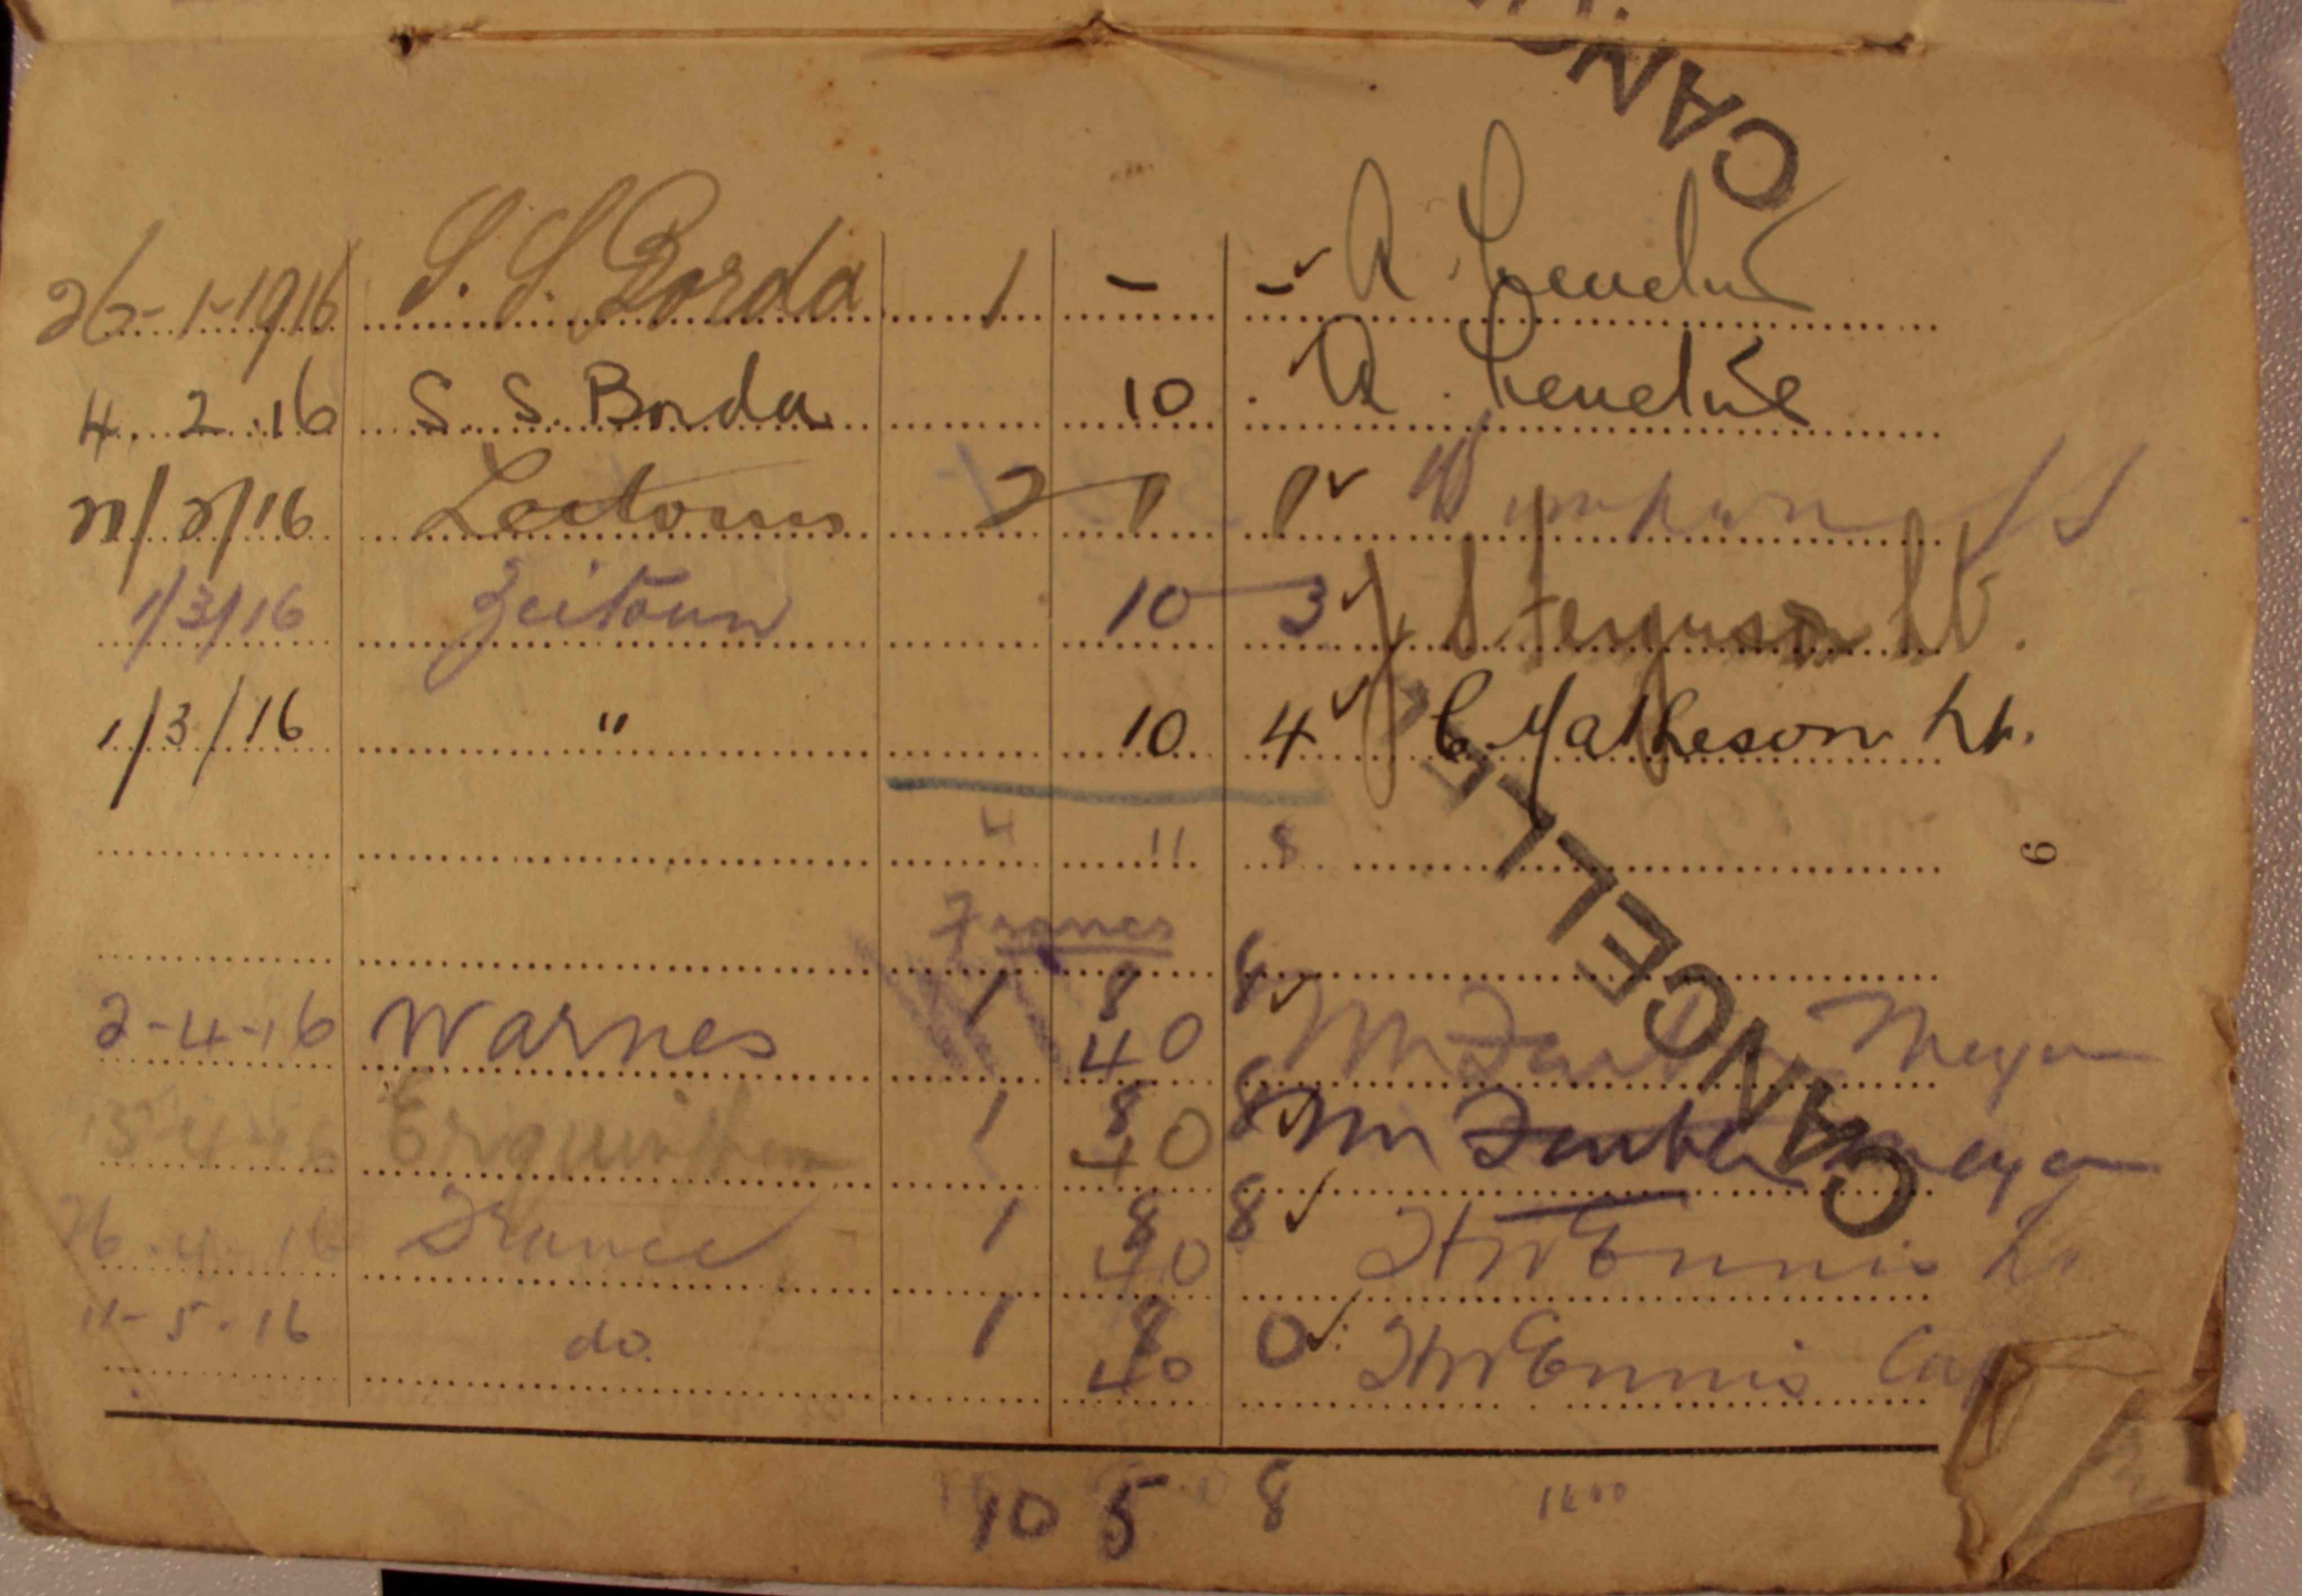 CANC
26-1-1916 S. S. Borda 1 - -
4.2.16 S. S. Borda 10
/16 2 1 1
1/3/16 Zeitoun 10 3 Ferguson Lt.
1/3/16 " 10 4 C. Matheson Lt.
4 11 8
9
Francs
1 8 8
2-4-16 Warnes 40 Meyer
1 8 8
15-4-16 Erquinghem 40 Meyer
1 8 8
26-4-16 France 40 HW Ennis Lt
1 8 0
11-5-16 do. 40 HW Ennis Cap
CANCELLED
10 5 8